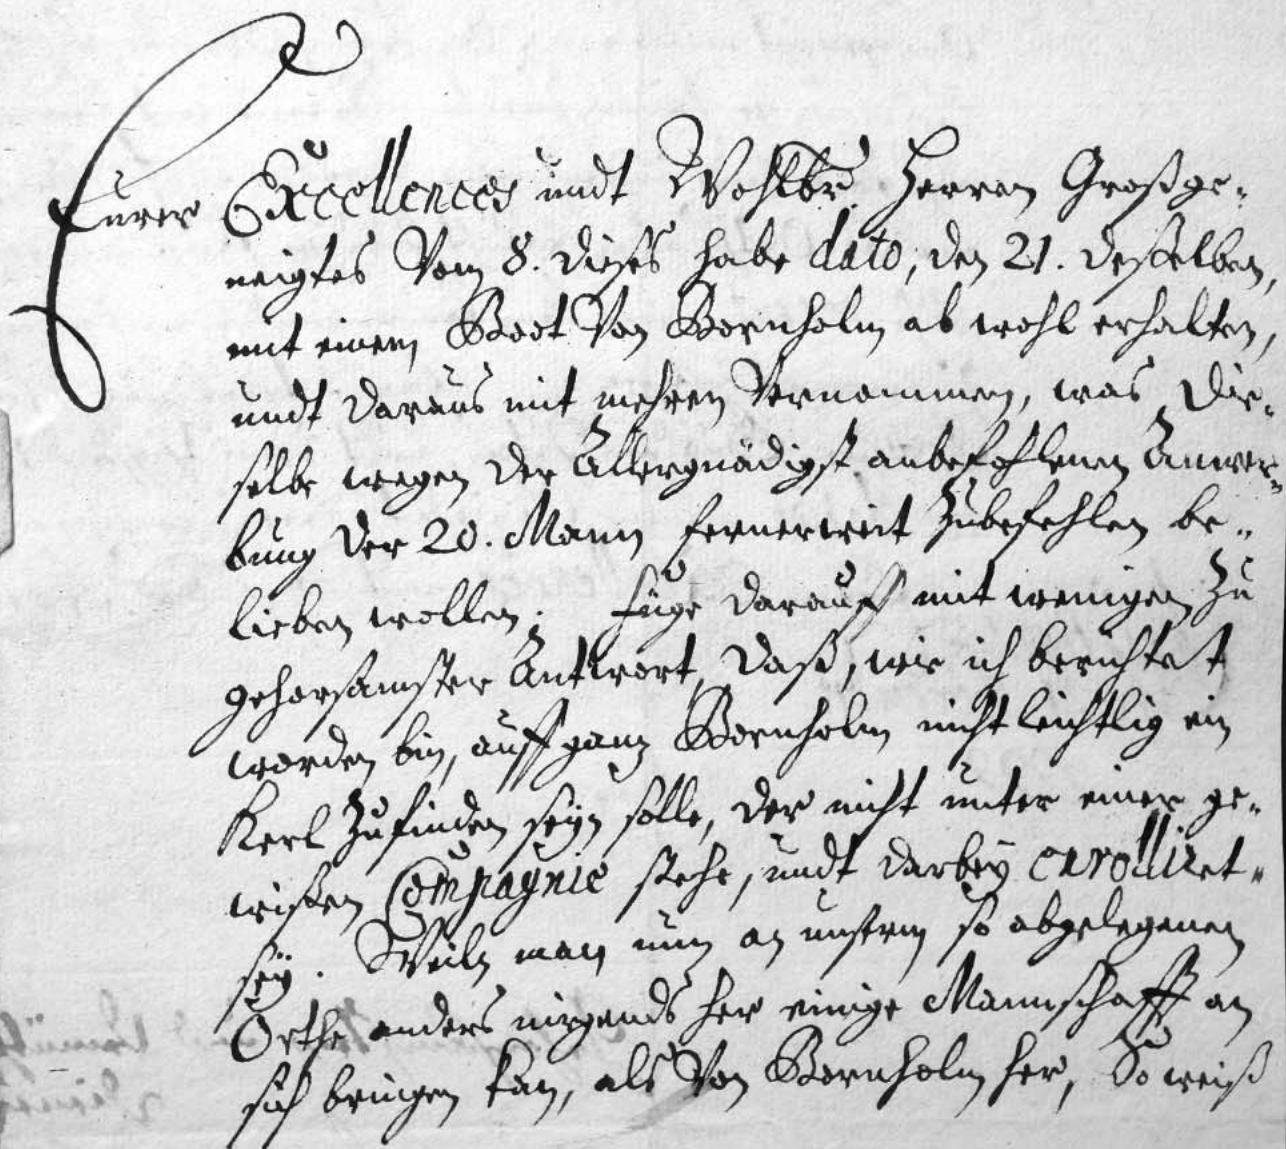 Eurer Excellences undt Wohlbr. Herren Großge-
neigtes Vom 8. dieses habe dato, den 21. desselben,
mit einem Boot Von Bornholm ab wohl erhalten,
undt daraus mit mehren Vernommen, was Die-
selbe wegen der Allergnädigst anbefohlenen Anwer-
bung der 20. Mann fernerweit Zubefehlen be-
lieben wollen; Füge darauff mit wenigen Zu
gehorsamster Antwort, daß, wie ich berichtet
worden bin, auff gantz Bornholm nicht leichtlig ein
Kerl Zufinden seyn solle, der nicht unter einer ge-
wißen Compagnie stehe, undt darbey enrolliret-
seÿ. Weiln man nun an unserm so abgelegenen
Orthe anders nirgends her einige Mannschafft an
sich bringen kan, als Von Bornholm her, So weiß